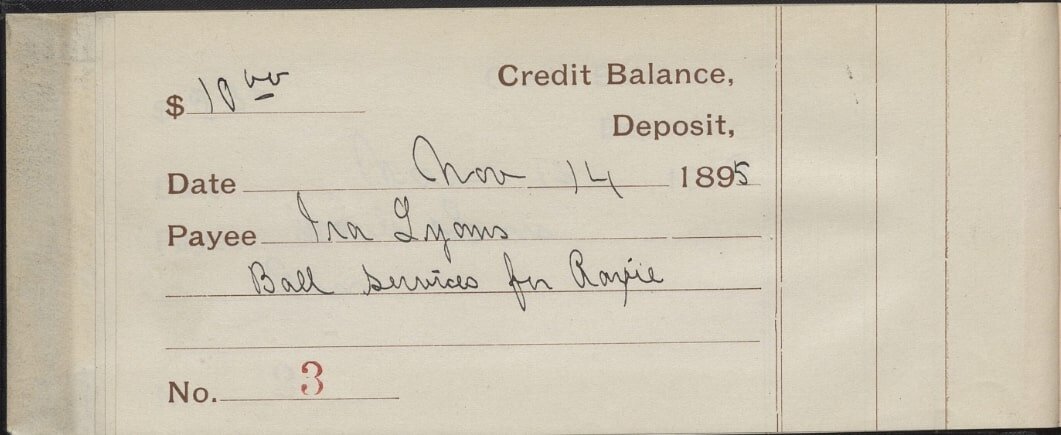 $ 10 00
Credit Balance,
Deposit,
Date Nov 14 1895
Payee Ira Lyons
Ball services for Roxie
No. 3